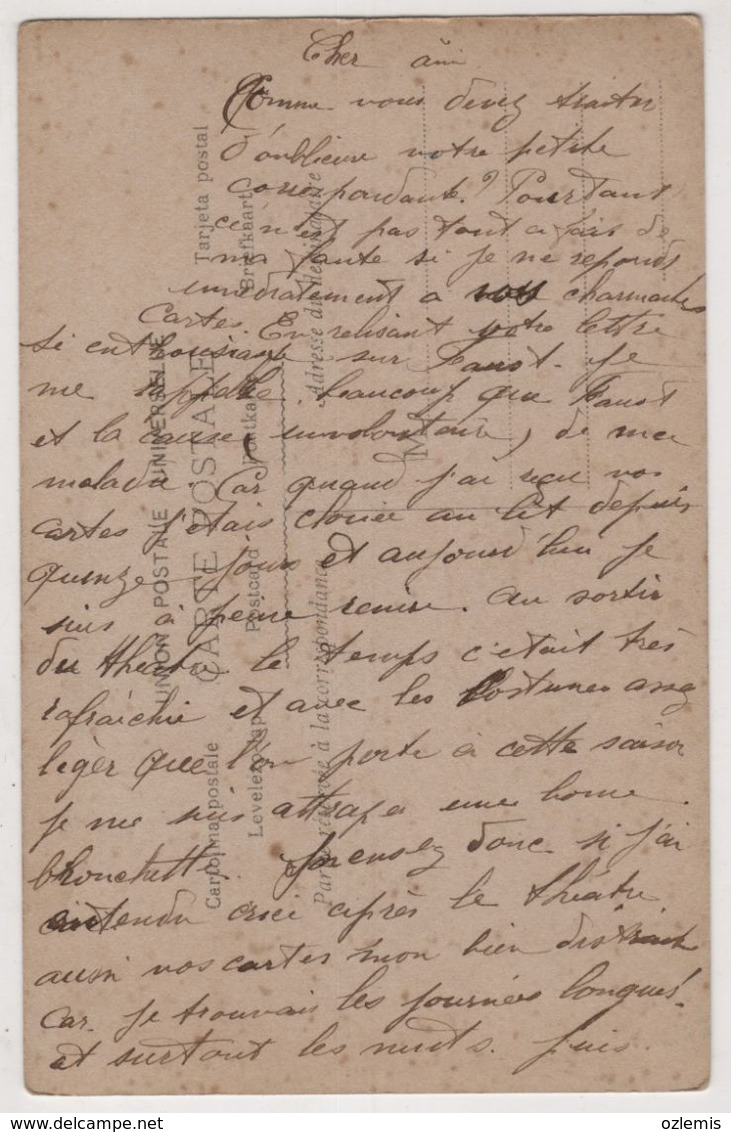 Cher ami
Comme vous devez traiter
d'oublieuse votre petite
correspondante? Pourtant
ce n'est pas tout a fais de
ma faute si je ne reponds
immédiatement a vos charmantes
cartes. En relisant votre lettre
si enthousiaste sur Faust. je
me rappelle beaucoup que Faust
et la cause (involontaire) de ma
maladie. Car quand j'ai reçu vos
cartes j'étais clouée au lit depuis
quenze jours et aujourd'hui je
suis à peine remise. Au sortir
du théatre le temps c'était très
rafraîchie et avec les costumes assez
léger que l'on porte à cette saison
je me suis attrapé une bonne
bronchette. pensez donc si j'ai
entendu ceci après le théatre
aussi vos cartes mon bien distrait
car je trouvais les journées longues!
et surtout les nuits. puis.
Tarjeta postal
Briefkaart
UNION POSTALE UNIVERSELLE
CARTE POSTALE
Postcard Postkarte
Cartolina postale
Levelező-Lap
Partie réservée à la correspondance
Adresse du destinataire
M
ozlemis